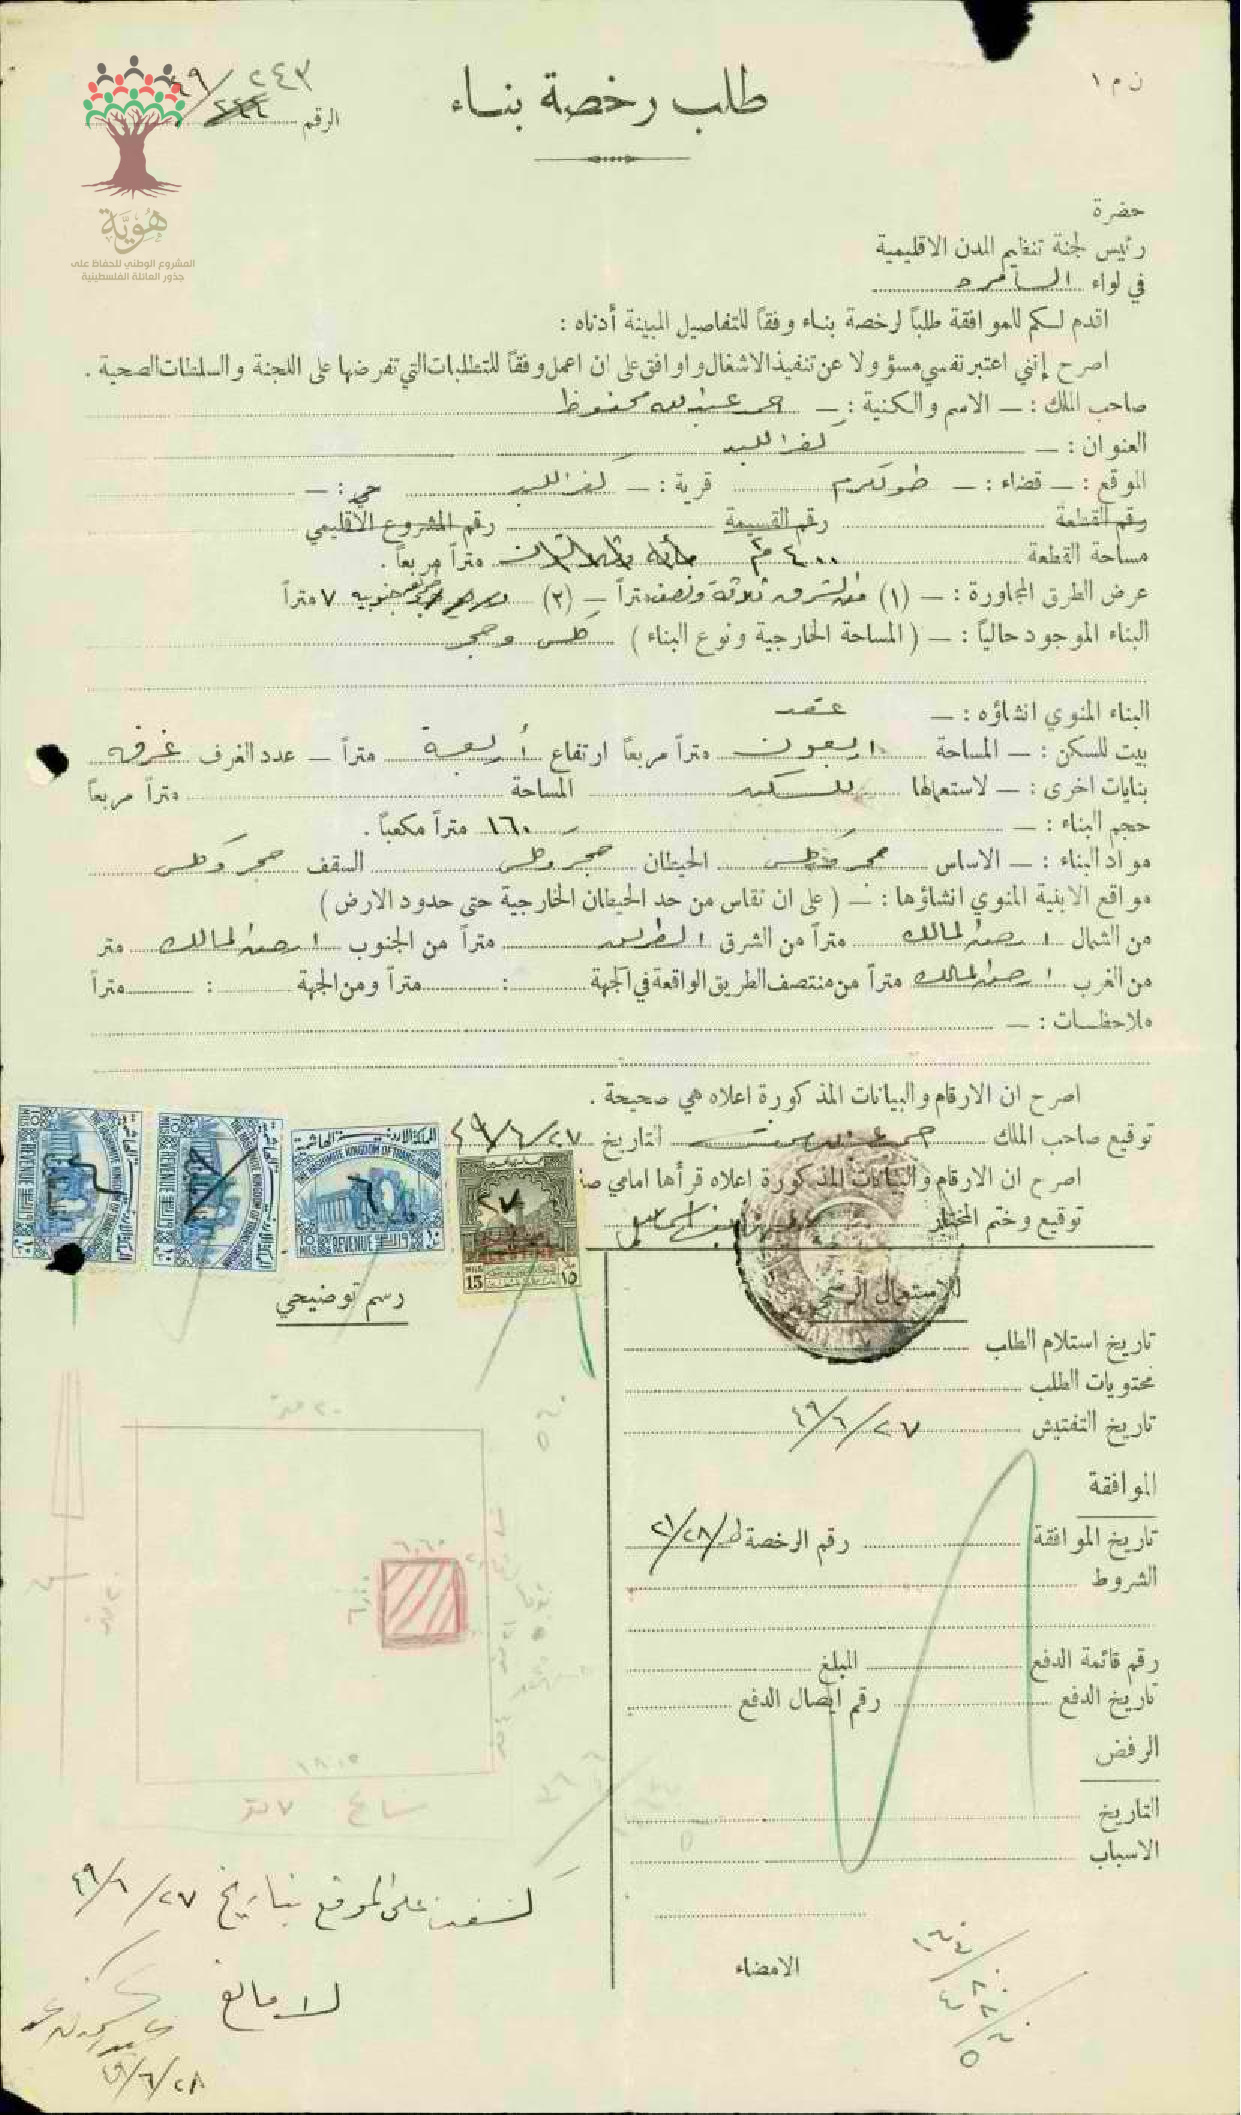 ن م ١
طلب رخصة بناء
الرقم ٢٤٣/٤٩
هُوِيَّة
المشروع الوطني للحفاظ على
جذور العائلة الفلسطينية
حضرة
رئيس لجنة تنظيم المدن الاقليمية
في لواء السامره
اقدم لكم للموافقة طلباً لرخصة بناء وفقاً للتفاصيل المبينة أدناه :
اصرح إنني اعتبر نفسي مسؤولا عن تنفيذ الاشغال واوافق على ان اعمل وفقاً للمتطلبات التي تفرضها على اللجنة والسلطات الصحية .
صاحب الملك : — الاسم والكنية : — عبدالله محفوظ
العنوان : — كفر اللبد
الموقع : — قضاء : — طولكرم قرية : — كفر اللبد حي : —
رقم القطعة رقم القسيمة رقم المشروع الاقليمي
مساحة القطعة ٤٠٠ م٢ متراً مربعاً .
عرض الطرق المجاورة : — (١) من الشرق ثلاثة ونصف متراً — (٢) جنوبيه ٧ متراً
البناء الموجود حالياً : — ( المساحة الخارجية ونوع البناء ) كلس وحجر
البناء المنوي انشاؤه : — عقد
بيت للسكن : — المساحة اربعون متراً مربعاً ارتفاع أربعة متراً — عدد الغرف غرفه
بنايات اخرى : — لاستعمالها للسكن المساحة متراً مربعاً
حجم البناء : — ١٦٠ متراً مكعباً .
مواد البناء : — الاساس حجر وكلس الحيطان حجر وكلس السقف حجر وكلس
مواقع الابنية المنوي انشاؤها : — ( على ان تقاس من حد الحيطان الخارجية حتى حدود الارض )
من الشمال ارض المالك متراً من الشرق الطريق متراً من الجنوب ارض المالك متر
من الغرب ارض المالك متراً من منتصف الطريق الواقعة في الجهة : متراً ومن الجهة : متراً
ملاحظات : —
اصرح ان الارقام والبيانات المذكورة اعلاه هي صحيحة .
توقيع صاحب الملك التاريخ ٢٧/٦/٤٩
اصرح ان الارقام والبيانات المذكورة اعلاه قرأها امامي
توقيع وختم المختار
المملكة الاردنية الهاشمية
THE HASHEMITE KINGDOM OF TRANSJORDAN
10 MILS REVENUE
٢٧
PALESTINE
MILS 15 ١٥
رسم توضيحي
للاستعمال الرسمي
تاريخ استلام الطلب
محتويات الطلب
تاريخ التفتيش ٢٧/٦/٤٩
الموافقة
تاريخ الموافقة رقم الرخصة ط/٢٨/٢١
الشروط
رقم قائمة الدفع المبلغ
تاريخ الدفع رقم ايصال الدفع
الرفض
التاريخ
الاسباب
الامضاء
٢٠ متر
٦،٦٠
٦،٠٠
١٨،٥
شارع ٧ متر
كشفت على الموقع بتاريخ ٢٧/٦/٤٩
لا مانع
٢٨/٦/٤٩